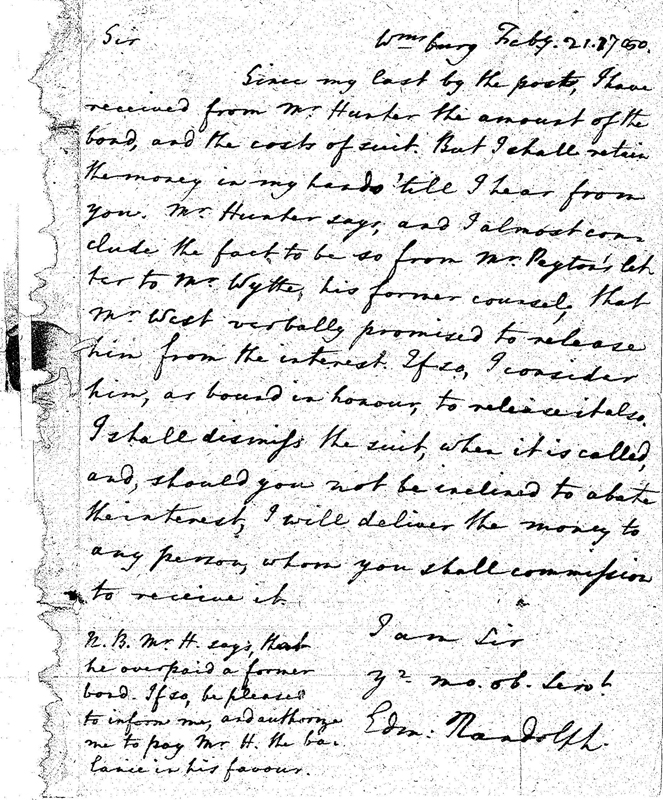 Sir
Wmsburg Feby. 21. 1780.
Since my last by the post, I have
received from Mr. Hunter the amount of the
bond, and the costs of suit. But I shall retain
the money in my hands 'till I hear from
you. Mr. Hunter says, and I almost con-
clude the fact to be so from Mr. Peyton's let-
ter to Mr. Wythe, his former counsel, that
Mr. West verbally promised to release
him from the interest. If so, I consider
him, as bound in honour, to release it also.
I shall dismiss the suit, when it is called,
and, should you not be inclined to abate
the interest, I will deliver the money to
any person, whom you shall commission
to receive it.
I am Sir
yr. mo. ob. Servt.
Edm: Randolph.
N. B. Mr. H. says, that
he overpaid a former
bond. If so, be pleased
to inform me, and authorize
me to pay Mr. H. the ba-
lance in his favour.